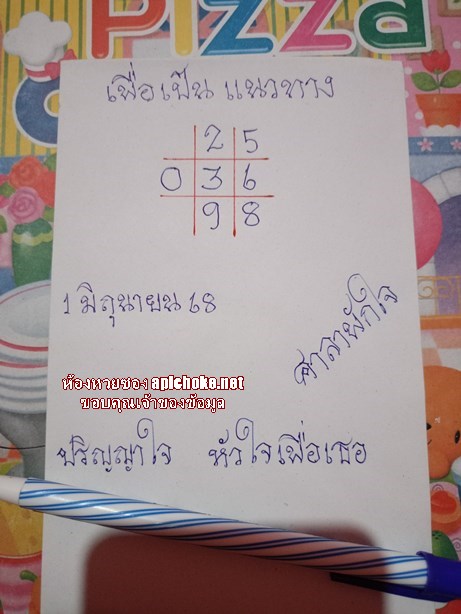 Pizza
เพื่อเป็น แนวทาง
2 5
0 3 6
9 8
1 มิถุนายน 68
ศาลาพักใจ
ห้องหวยซอง apichoke.net
ขอบคุณเจ้าของข้อมูล
ปริญญาใจ หัวใจเพื่อเธอ